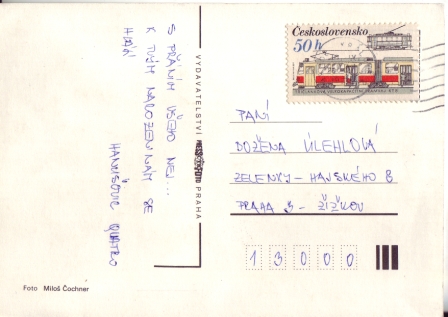 S PŘÁNÍM VŠEHO NEJ...
K TVÝM NAROZENINÁM SE
HLÁSÍ
VYDAVATELSTVÍ
PRAHA
Československo
50 h
PANÍ
BOŽENA ÚLEHLOVÁ
ZELENKY-HAJSKÉHO 8
PRAHA 3- ŽIŽKOV
13000
Foto Miloš Čochner